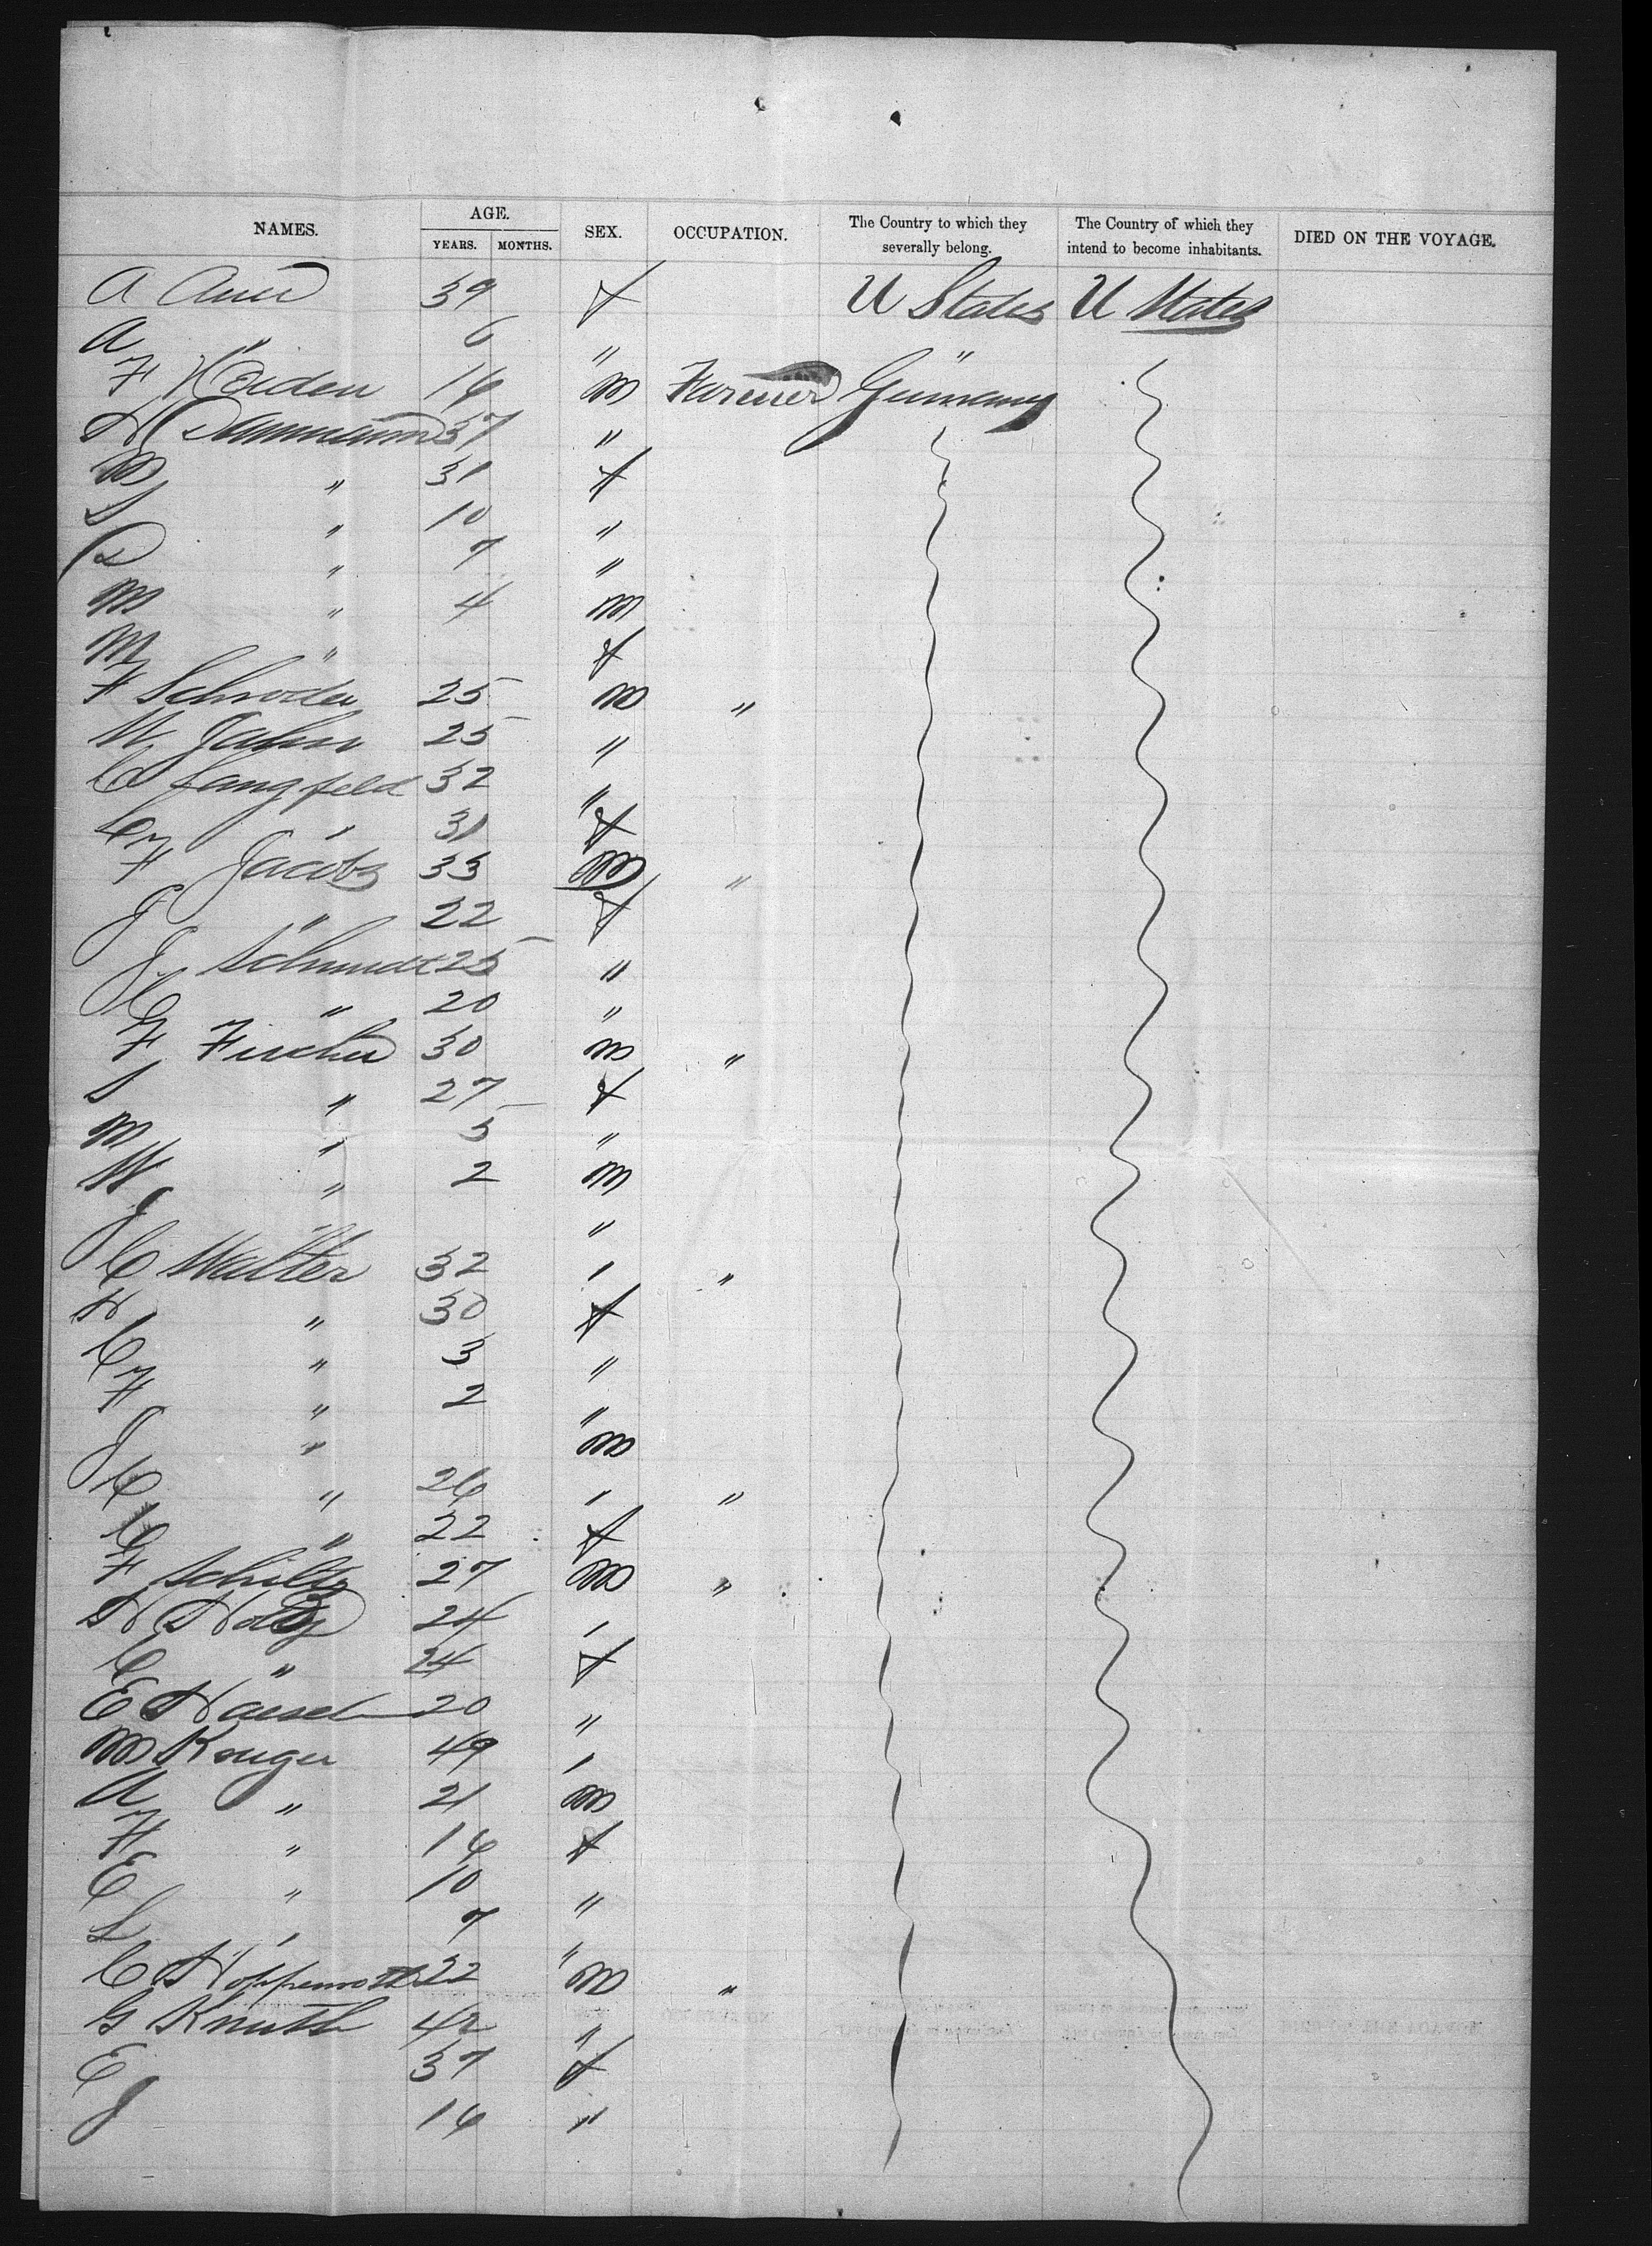 NAMES. AGE. YEARS. MONTHS. SEX. OCCUPATION. The Country to which they severally belong. The Country of which they intend to become inhabitants. DIED ON THE VOYAGE.
A Auer 39 f U States U States
A " 6 " "
F Heiden 16 m Farmer Germany
H Dammann 37 "
M " 31 f
S " 10 "
D " 7 "
M " 4 m
M " f
F Schroder 25 m "
W Jahn 25 "
C Langfeld 32 "
C " 31 f
F Jacobs 33 m "
J " 22 f
J. Schmidt 25 "
C " 20 "
F Fischer 30 m "
S " 27 f
M " 5 "
W " 2 m
J " "
C Walter 32 " "
H " 30 f
C " 3 "
F " 2 "
J " m
C " 26 " "
C " 22 f
F Schultz 27 m "
H Holtz 24 "
C " 24 f
E 20 "
M Kruger 49 "
A " 21 m
F " 16 f
E " 10 "
L " 7 "
C Hoppenroth 22 m "
G Knuth 42 "
E 37 f
J 16 "